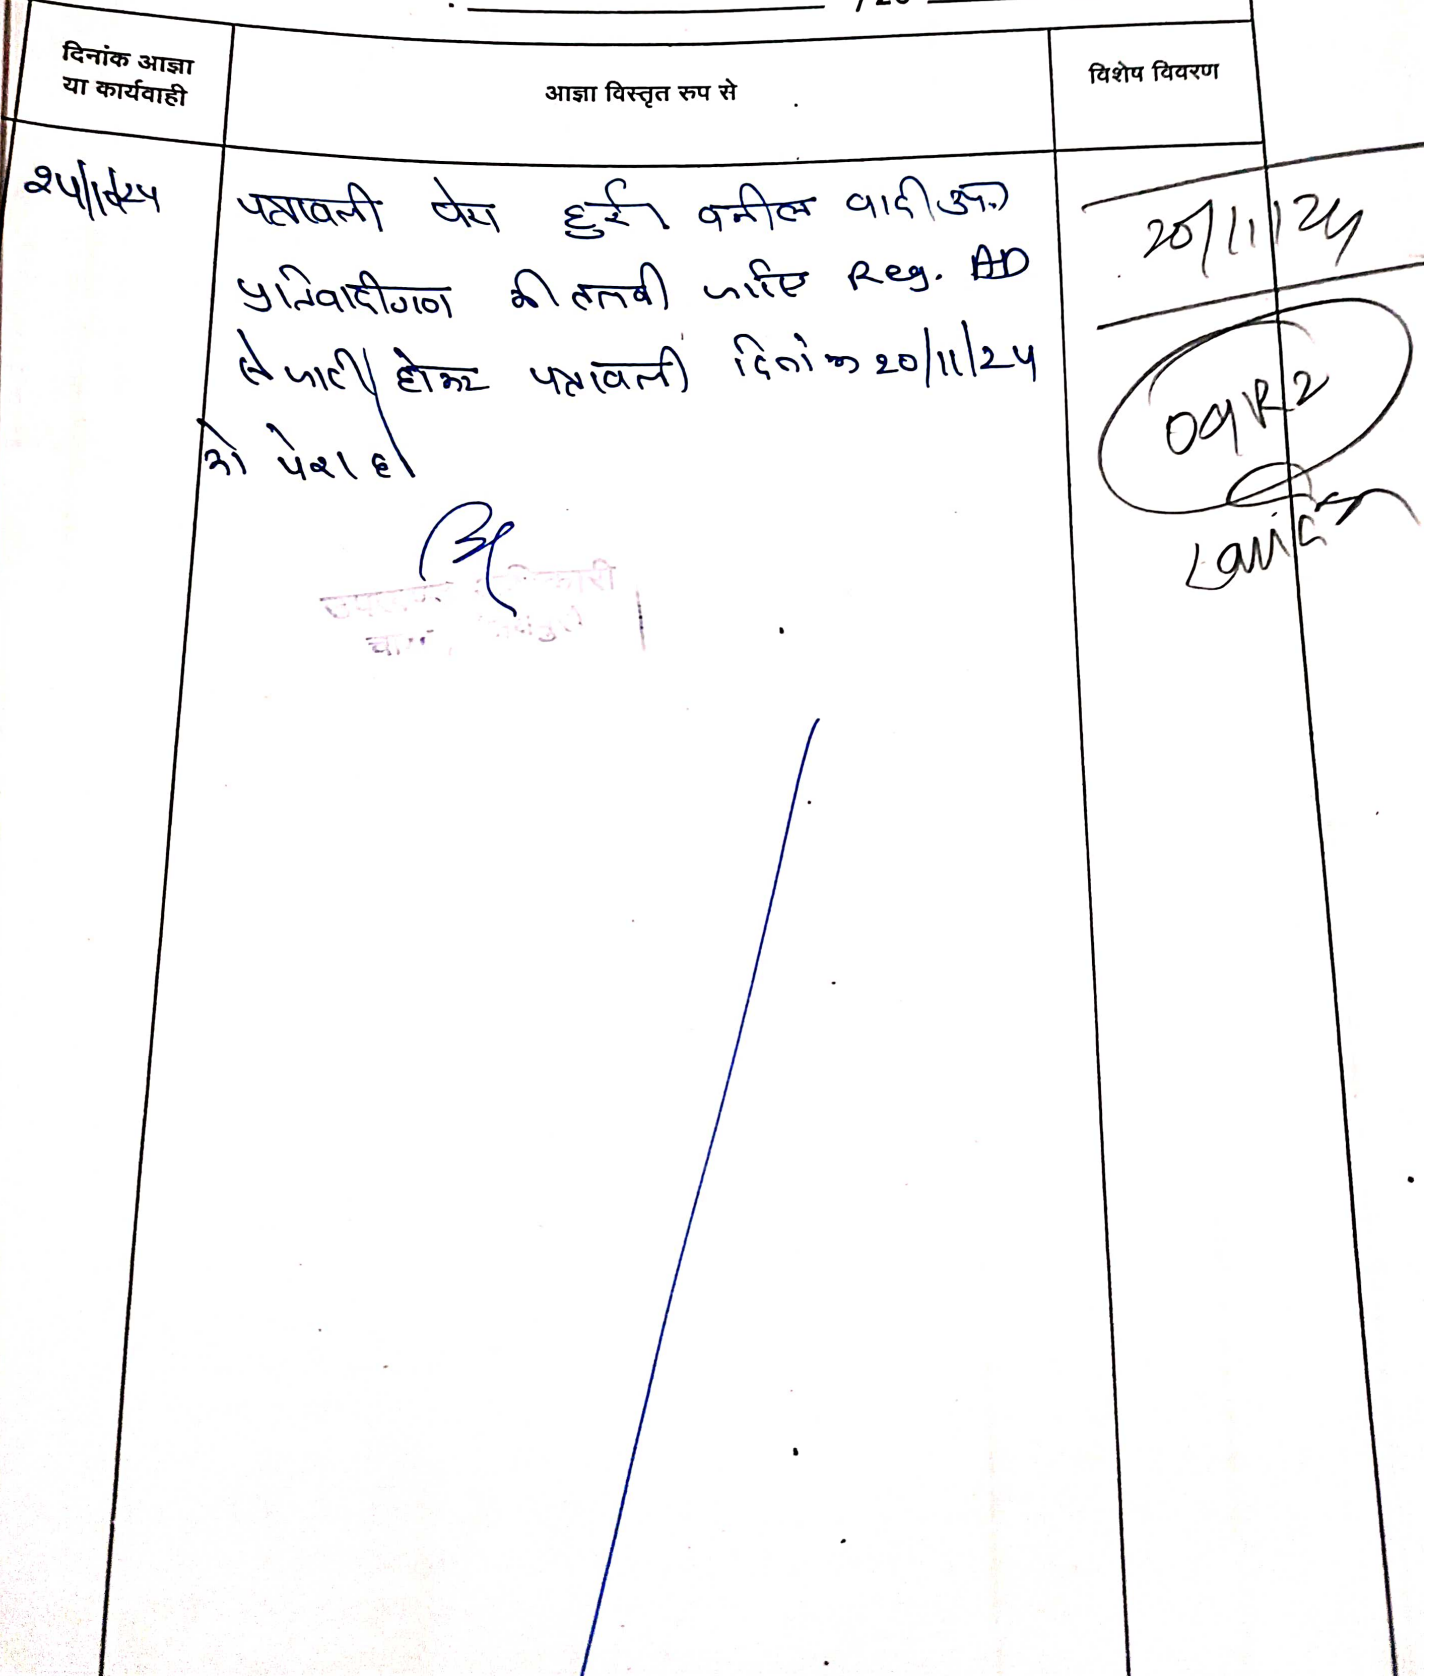 /20
दिनांक आज्ञा
या कार्यवाही
आज्ञा विस्तृत रुप से
विशेष विवरण
पत्रावली पेश हुई। वकील वादी उप०
प्रतिवादीगण की तलबी जरिए Reg. AD
से जारी होकर पत्रावली दिनांक 20/11/24
को पेश हो
20/11/24